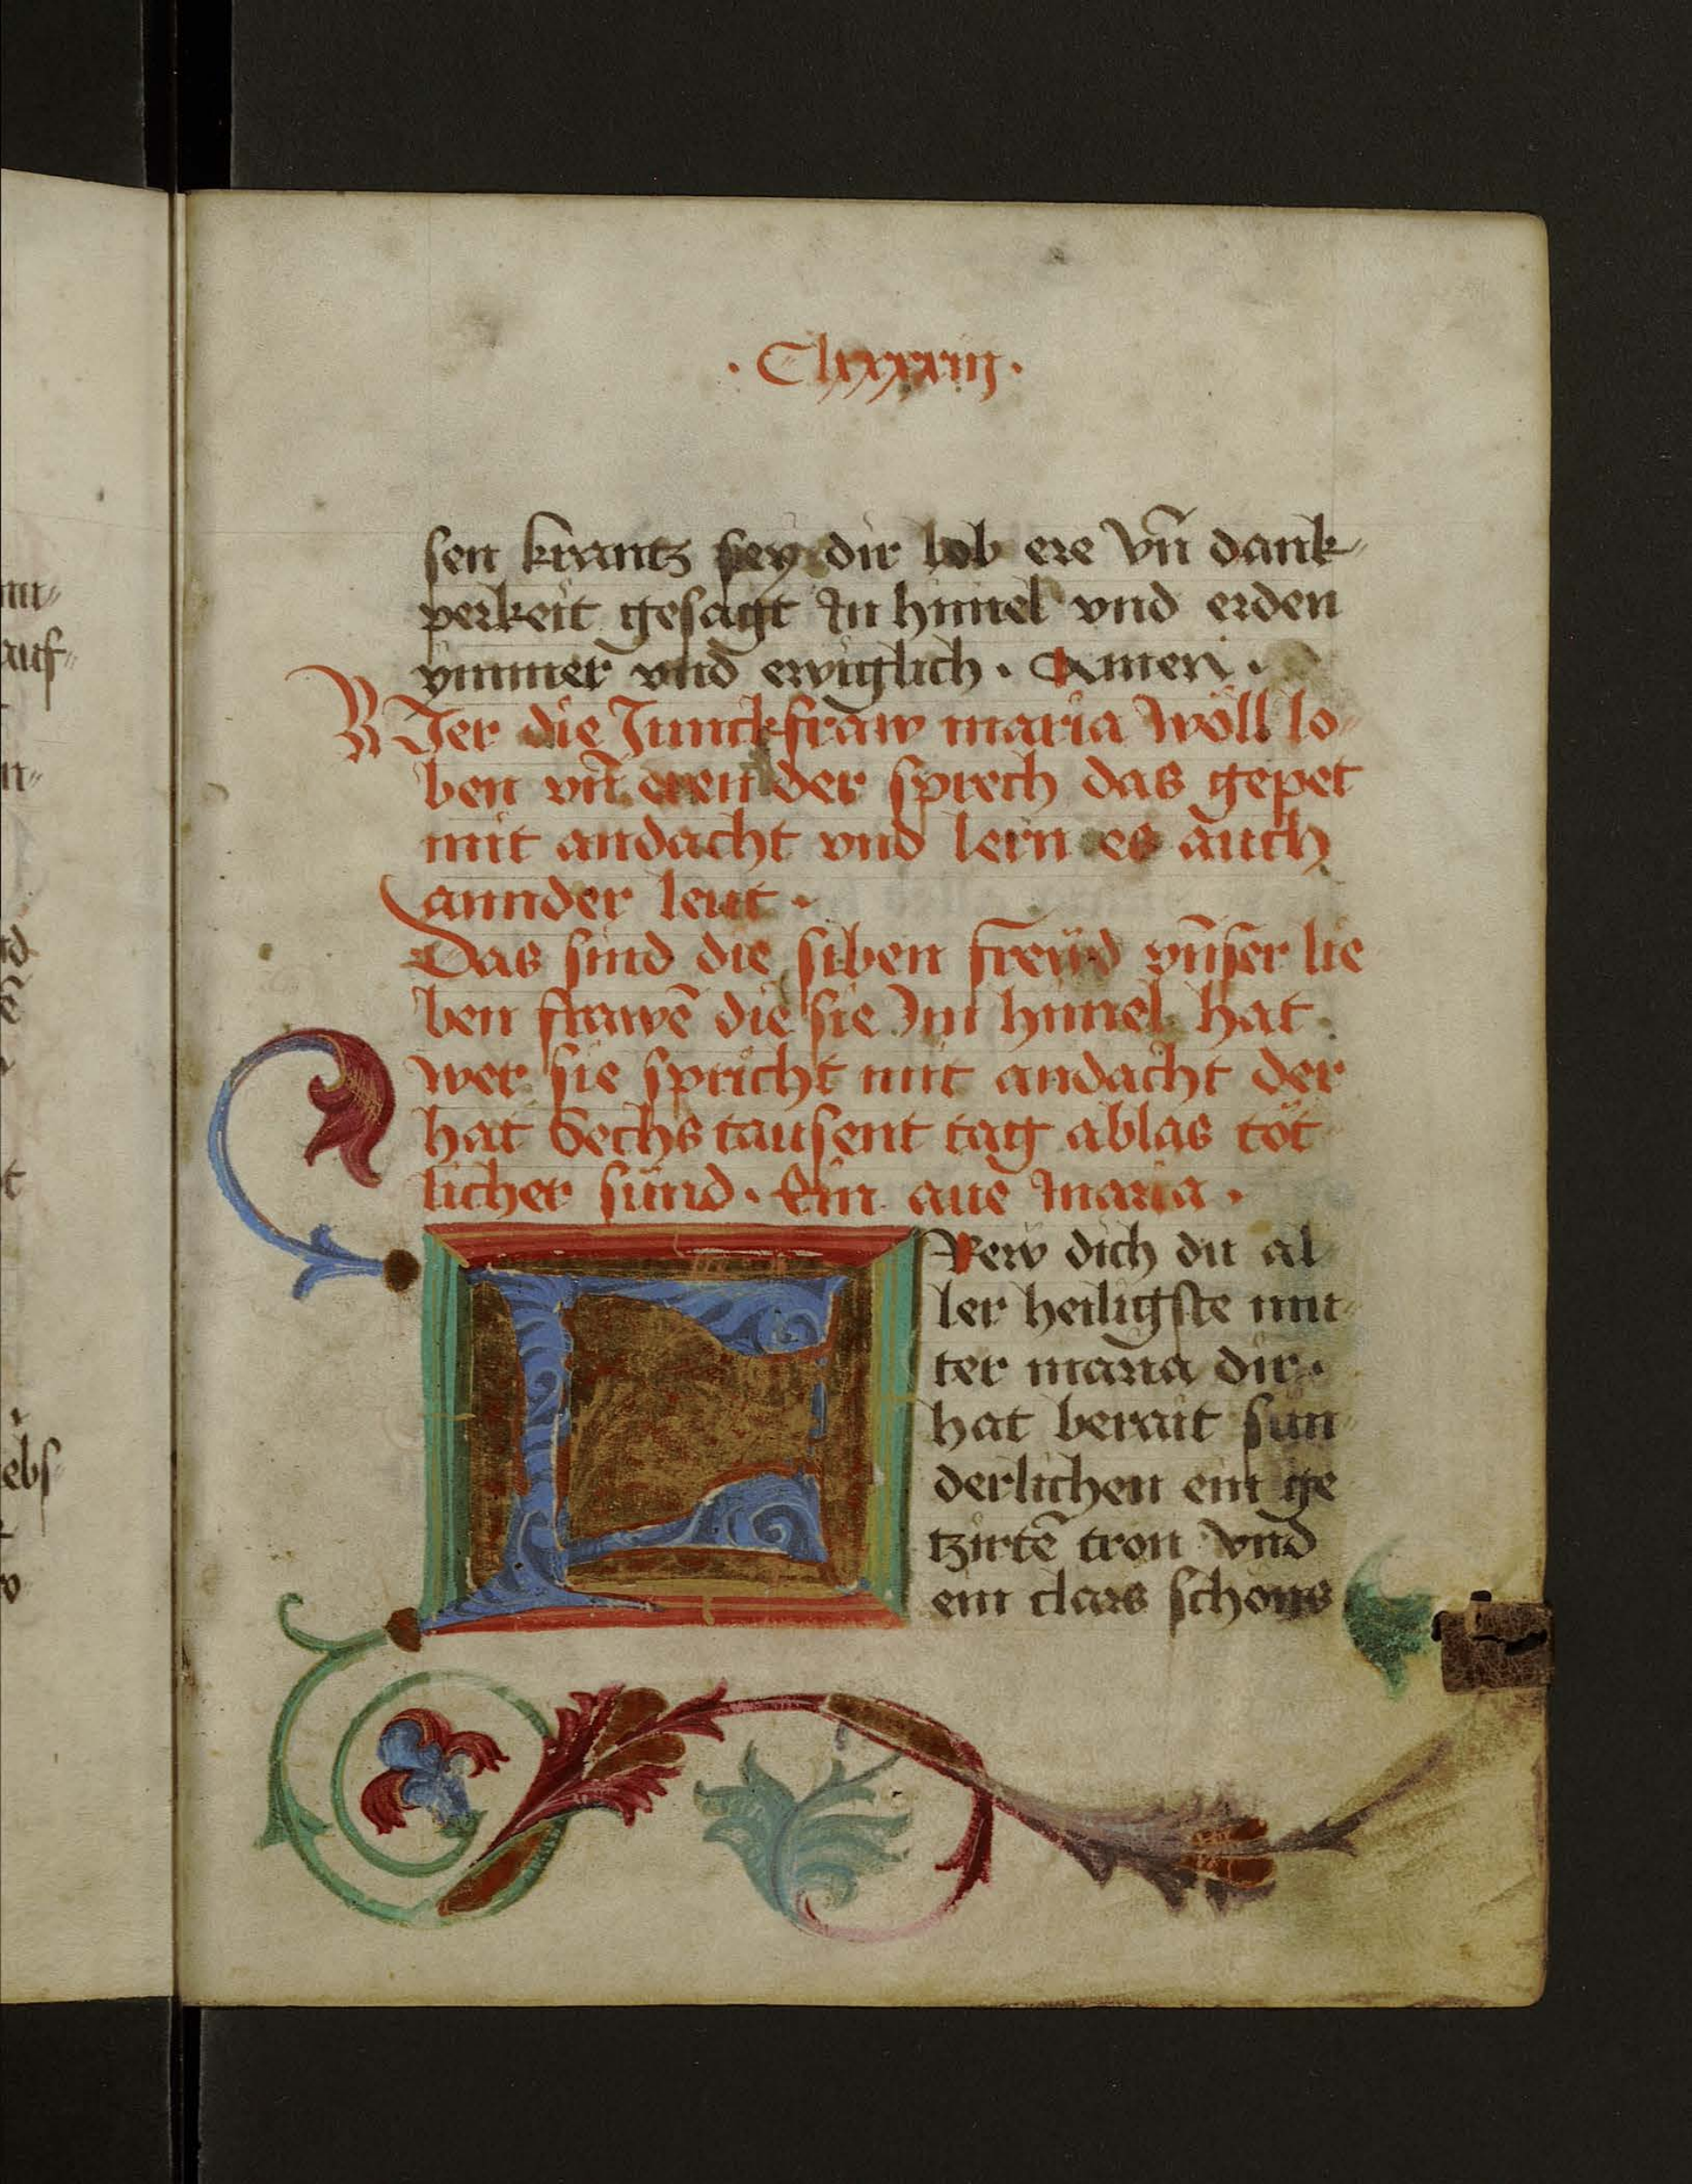 · Clxxxxiij ·
sen krantz sey dir lob ere vn̄ dank„
perkeit gesagt In himel vnd erden
ymmer vnd ewiglich · Amen ·
WJer die Junckfraw maria wöll lo„
ben vn̄ eren der sprech das gepet
mit andacht vnd lern es auch
annder leut ·
Das sind die siben freüd vn̄ser lie
ben frawē die sie Im himel hat
wer sie spricht mit andacht der
hat Sechs tausent tag ablas töt
licher sünd · Ein aue maria ·
FRew dich du al
ler heiligste mu„
ter maria dir ·
hat berait sun„
derlichen ein ge
tzirtē tron vnd
ein clars schons
auf„